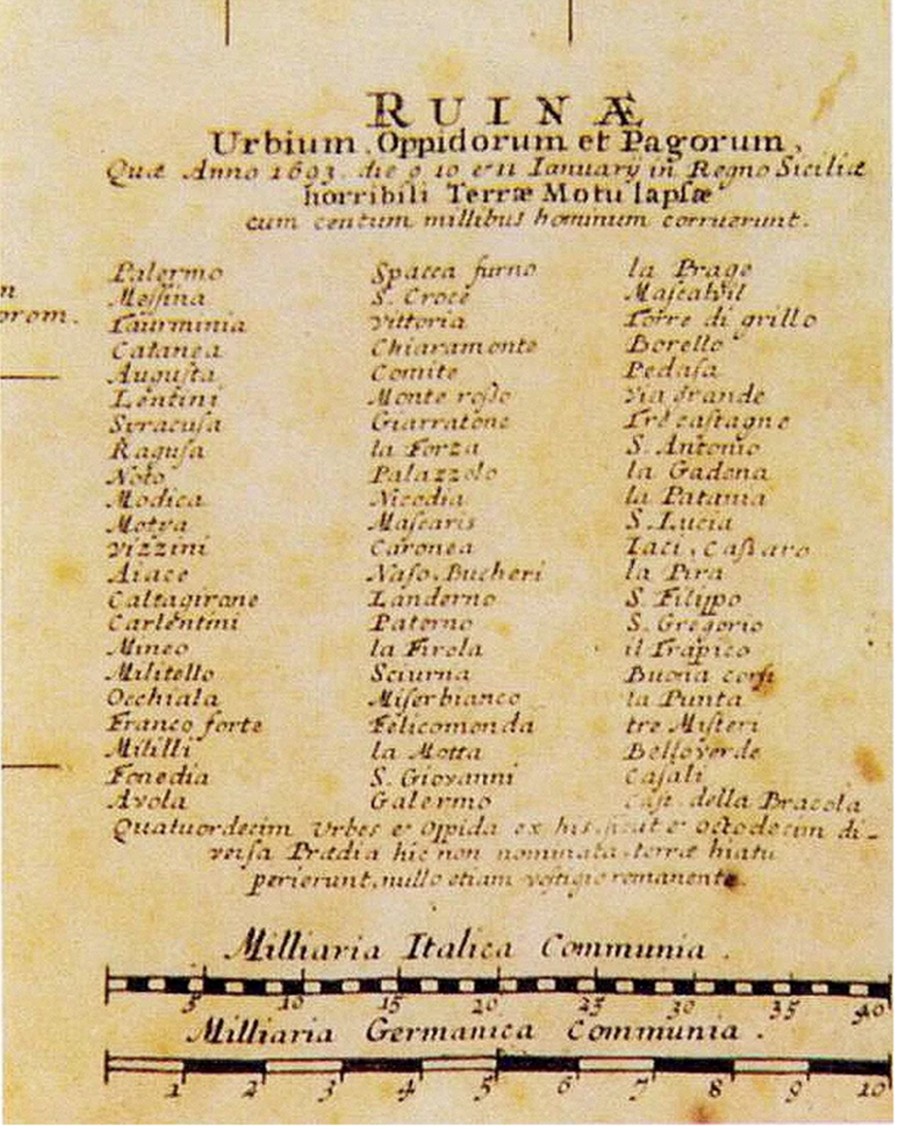 RUINÆ
Urbium, Oppidorum et Pagorum,
Quæ Anno 1693. die 9 10 et 11 Ianuarij in Regno Siciliæ
horribili Terræ Motu lapſæ
cum centum millibus hominum corruerunt.
Palermo
Meſſina
Taurminia
Catanea
Auguſta
Lentini
Syracuſa
Raguſa
Noto
Modica
Motya
Vizzini
Aiace
Caltagirone
Carlentini
Mineo
Militello
Occhiala
Franco forte
Mililli
Fenedia
Avola
Spacca furno
S. Croce
Vittoria
Chiaramonte
Comite
Monte roſſo
Giarratone
la Forza
Palazzolo
Nicodia
Maſcaris
Caronea
Naſo. Bucheri
Landerno
Paterno
la Firola
Sciurna
Miſerbianco
Felicomonda
la Motta
S. Giovanni
Galermo
la Prage
Torre di grillo
Borello
Pedaſa
Via grande
Tre caſtagne
S. Antonio
la Gadena
la Patania
S. Lucia
Iaci
la Pira
S. Filippo
S. Gregorio
il Trapico
Buona
la Punta
tre Miſteri
Belloverde
Caſali
della Bracola
Quatuordecim Urbes et Oppida ex his, ſicut et octodecim di-
verſa Prædia hic non nominata, terræ hiatu
perierunt, nullo etiam veſtigio romanente.
n
orom.
Milliaria Italica Communia.
5 10 15 20 25 30 35 40
Milliaria Germanica Communia.
1 2 3 4 5 6 7 8 9 10